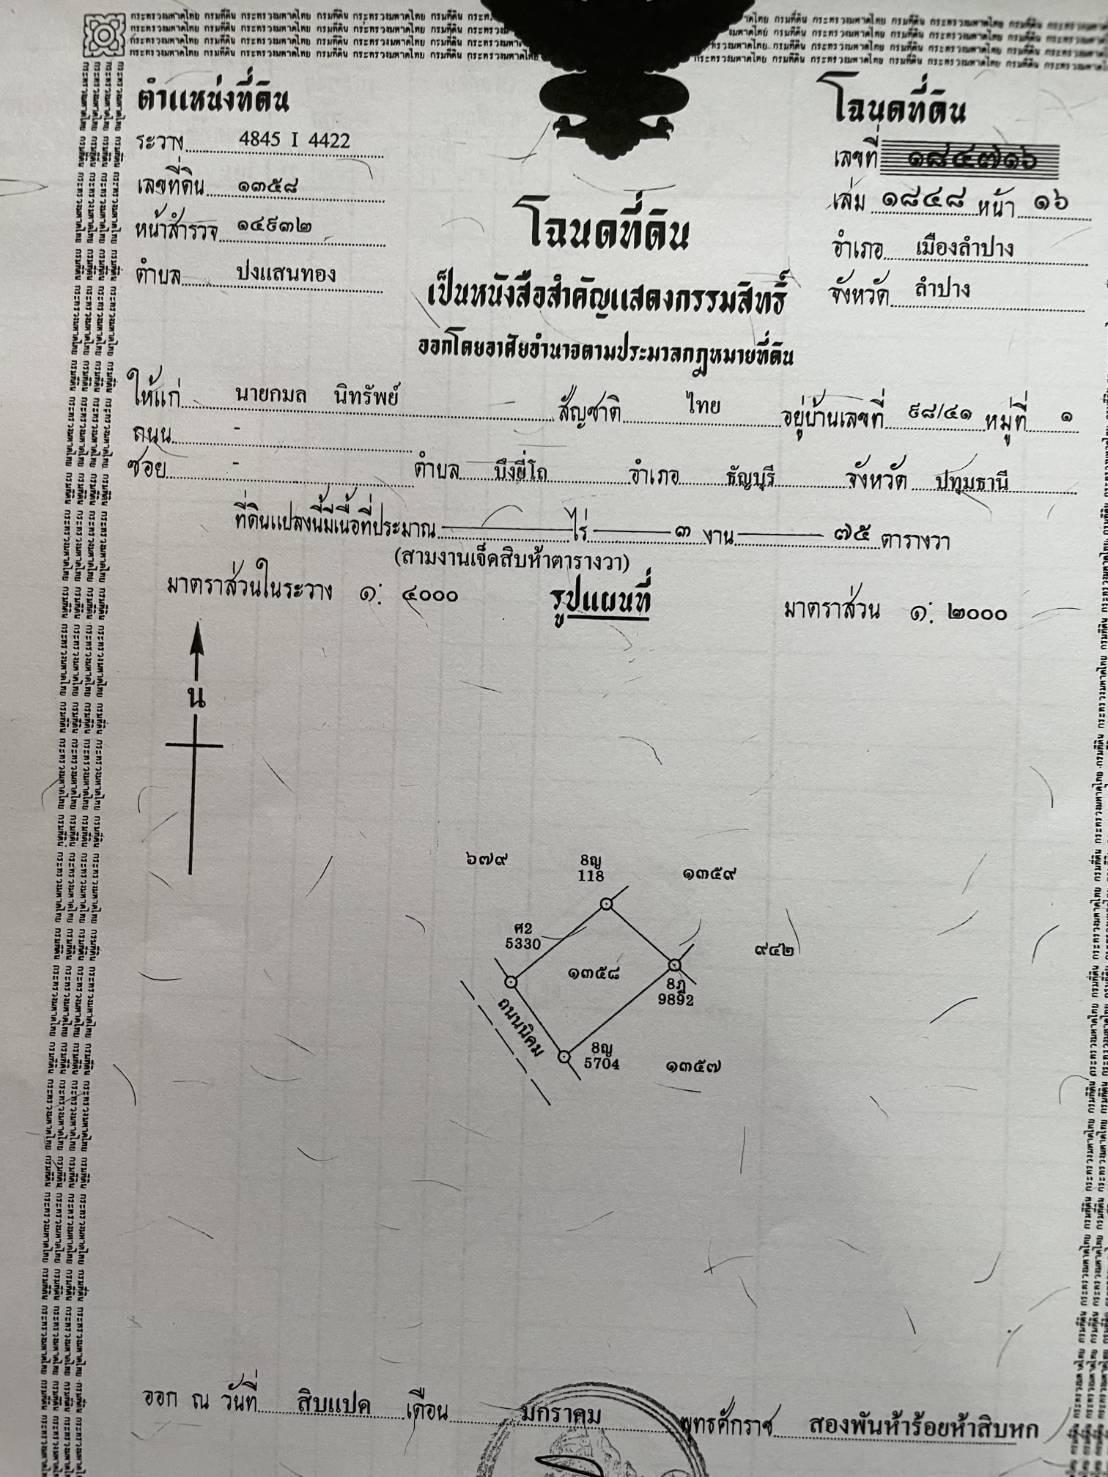 ตำแหน่งที่ดิน
ระวาง 4845 I 4422
เลขที่ดิน ๑๓๕๘
หน้าสำรวจ ๑๔๙๓๒
ตำบล ปงแสนทอง
โฉนดที่ดิน
เลขที่ ๑๘๔๗๑๖
เล่ม ๑๘๔๘ หน้า ๑๖
อำเภอ เมืองลำปาง
จังหวัด ลำปาง
โฉนดที่ดิน
เป็นหนังสือสำคัญแสดงกรรมสิทธิ์
ออกโดยอาศัยอำนาจตามประมวลกฎหมายที่ดิน
ให้แก่ นายกมล นิทรัพย์ - สัญชาติ ไทย อยู่บ้านเลขที่ ๙๘/๔๑ หมู่ที่ ๑
ถนน -
ซอย - ตำบล บึงยี่โถ อำเภอ ธัญบุรี จังหวัด ปทุมธานี
ที่ดินแปลงนี้มีเนื้อที่ประมาณ ไร่ ๓ งาน ๗๕ ตารางวา
(สามงานเจ็ดสิบห้าตารางวา)
มาตราส่วนในระวาง ๑: ๔๐๐๐ รูปแผนที่ มาตราส่วน ๑: ๒๐๐๐
น
๖๗๙
8ญ
118
๑๓๕๙
ศ2
5330
๑๓๕๘
๙๔๒
8ฎ
9892
ถนนนิคม
8ญ
5704
๑๓๕๗
ออก ณ วันที่ สิบแปด เดือน มกราคม พุทธศักราช สองพันห้าร้อยห้าสิบหก